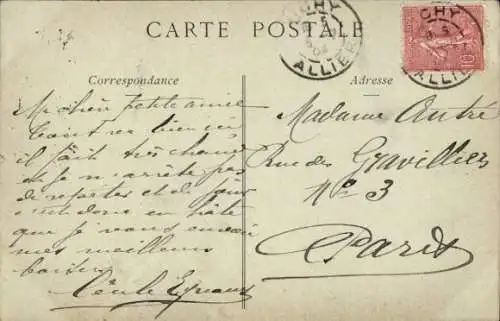 CARTE POSTALE
VICHY
ALLIER
VICHY
ALLIER
10
Correspondance
Adresse
Ma chère petite amie
il fait très chaud
et je n'arrête pas
de
donc en hâte
que je vous envoie
mes meilleurs
baisers
Cécile
Madame André
Rue des Gravilliers
No 3
Paris